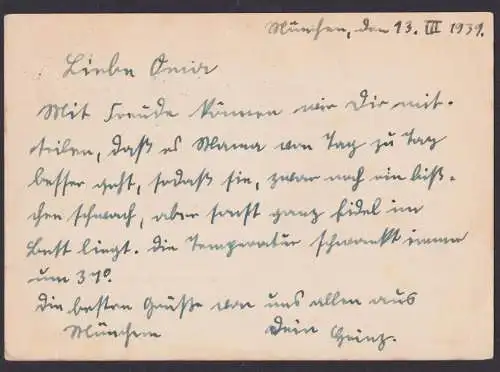 München, den 13. III 1939.
Liebe Omia
Mit Freude können wir Dir mit-
teilen, daß es Mama von Tag zu Tag
besser geht, sodaß sie, zwar noch ein biß-
chen schwach, aber sonst ganz fidel im
Bett liegt. Die Temperatur schwankt immer
um 37°.
Die besten Grüße von uns allen aus
München Dein Heinz.